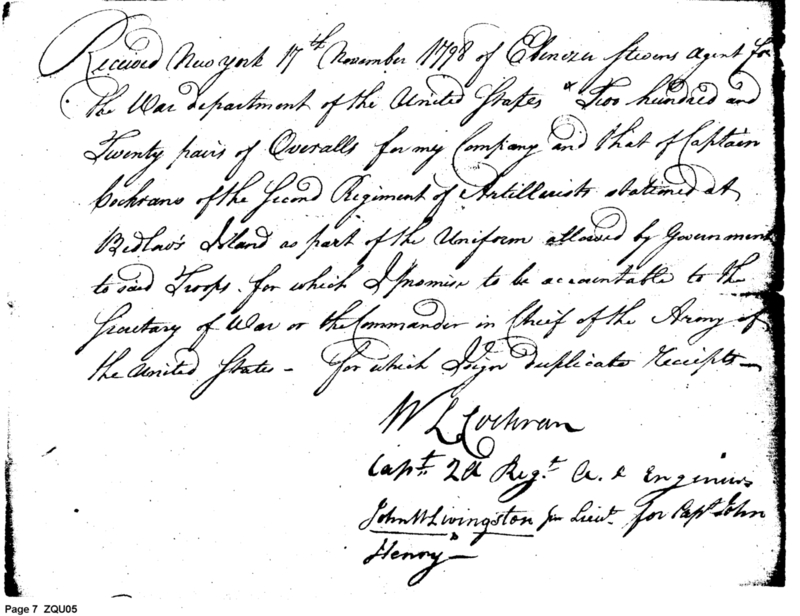 Received New york 17th November 1798 of Ebenezer Stevens Agent for
the War department of the United States Two hundred and
Twenty pairs of Overalls for my Company and that of Captain
Cochrans of the Second Regiment of Artillerists stationed at
Bedlow's Island as part of the Uniform allowed by Government
to said Troops. for which I promise to be accountable to the
Secretary of War or the Commander in Chief of the Army of
the United States - for which I sign duplicate receipts -
W L Cochran
Capt. 2d Regt. A. & Engineers
John W Livingston Lieut. for Capt John
Henry -
Page 7 ZQU05